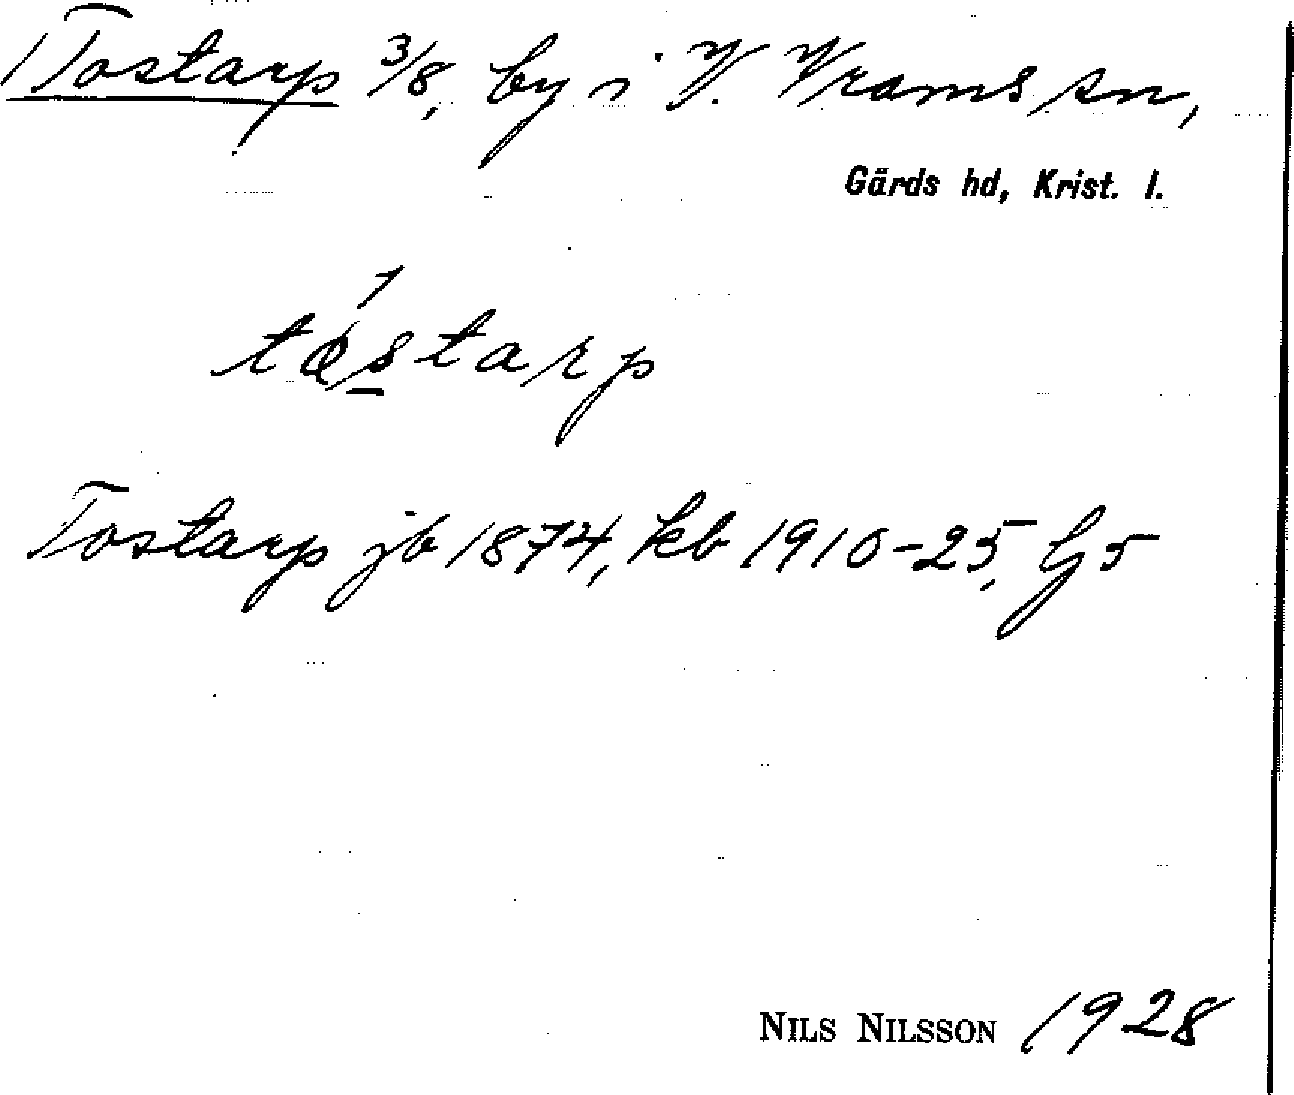 Tostarp 3/8, by i V. Vrams sn,
Gärds hd, Krist. l.
Tostarp jb 1874, kb 1910-25, G5
NILS NILSSON 1928